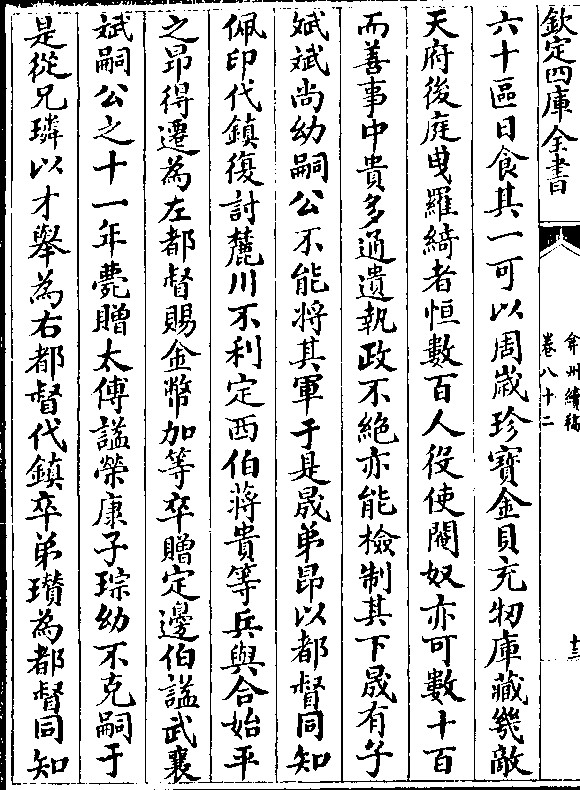 欽定四庫全書
弇州續稿
卷八十二
十三
六十區日食其一可以周嵗珍寳金貝充牣庫藏幾敵
天府後庭曵羅綺者恒數百人役使閹奴亦可數十百
而善事中貴多通遺執政不絶亦能檢制其下晟有子
斌斌尚幼嗣公不能將其軍于是晟弟昂以都督同知
佩印代鎮復討麓川不利定西伯蔣貴等兵與合始平
之昂得遷為左都督賜金幣加等卒贈定邊伯諡武襄
斌嗣公之十一年薨贈太傅諡榮康子琮幼不克嗣于
是從兄璘以才舉為右都督代鎮卒弟瓚為都督同知